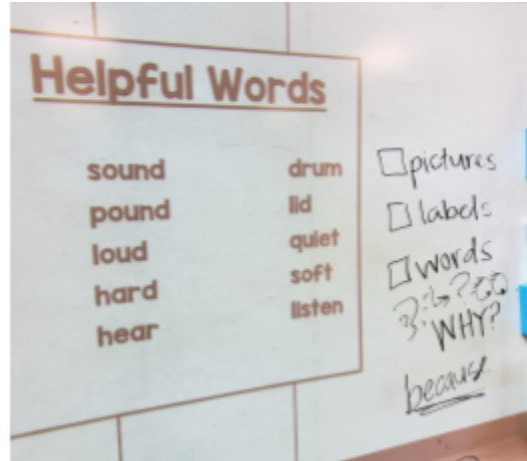 Helpful Words
sound
pound
loud
hard
hear
drum
lid
quiet
soft
listen
pictures
labels
words
WHY?
because